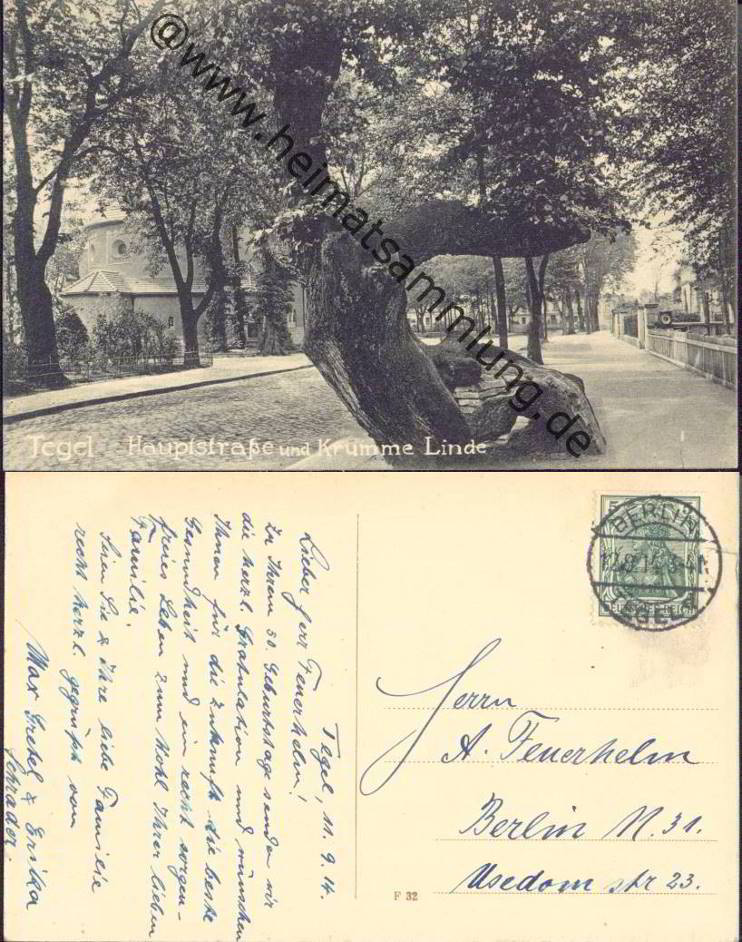 @www.heimatsammlung.de
Tegel Hauptstraße und Krumme Linde
Tegel, 11.9.14.
Lieber Herr Feuerhelm!
Zu Ihrem 50. Geburtstage senden wir
die herzl. Gratulation und wünschen
Ihnen für die Zukunft die beste
Gesundheit und ein recht sorgen-
freies Leben zum Wohl Ihrer lieben
Familie!
Seien Sie & Ihre liebe Familie
recht herzl. gegrüßt von
Max Gretel & Erika
Schrader.
BERLIN
TEGEL
DEUTSCHES REICH
Herrn
A. Feuerhelm
Berlin N. 31.
Usedom str 23.
F 32